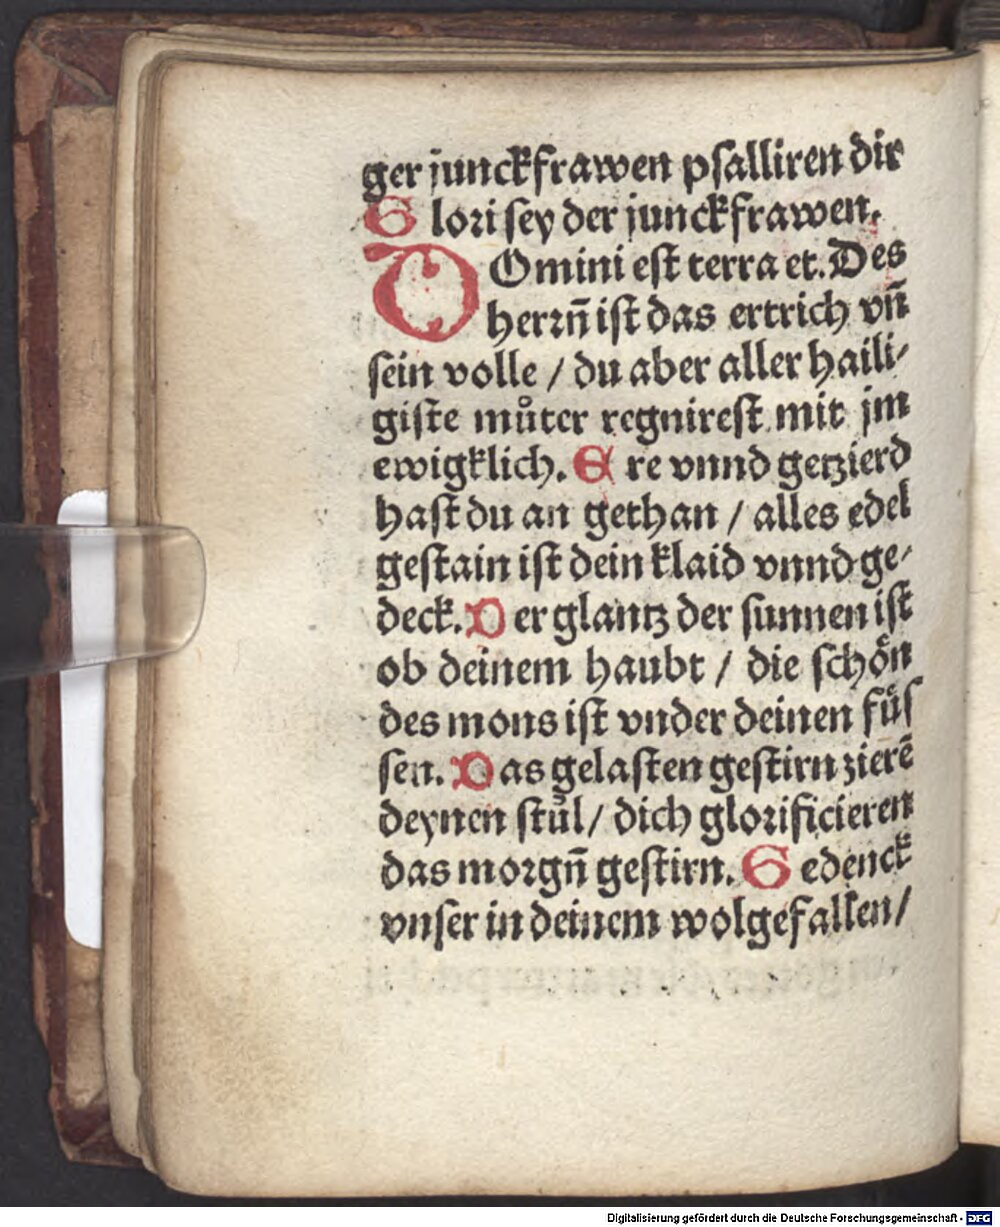 ger junckfrawen psalliren dir
Glori sey der junckfrawen.
DOmini est terra et. Des
herrñ ist das ertrich vñ
sein volle / du aber aller haili⸗
giste můter regnirest mit jm
ewigklich. Ere vnnd getzierd
hast du an gethan / alles edel
gestain ist dein klaid vnnd ge⸗
deck. Der glantz der sunnen ist
ob deinem haubt / die schön
des mons ist vnder deinen füs
sen. Das gelasten gestirn zierē
deynen stůl / dich glorificieren
das morgñ gestirn. Gedenck
vnser in deinem wolgefallen /
Digitalisierung gefördert durch die Deutsche Forschungsgemeinschaft - DFG